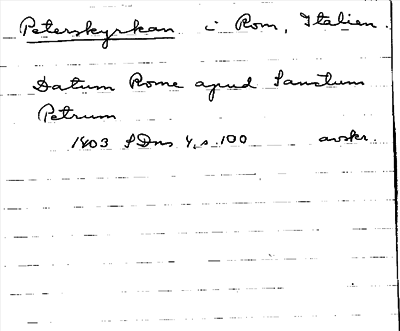 Peterskyrkan i Rom, Italien.
Datum Rome apud Sanctum
Petrum
1403 SDns 1, s. 100 avskr.